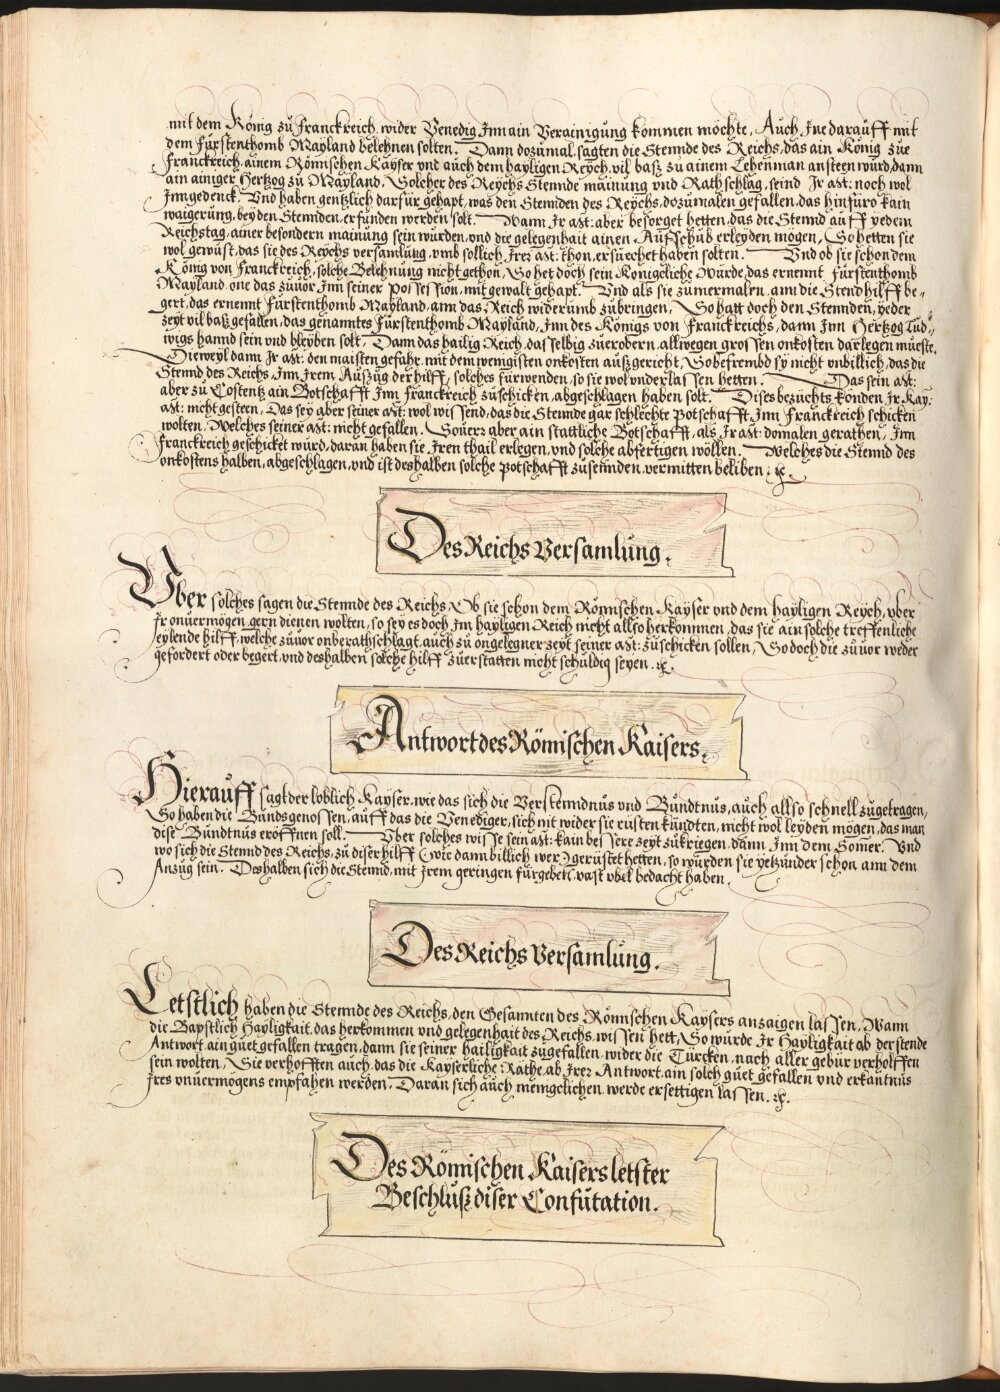 mit dem König zu Franckreich, wider Venedig Inn ain Verainigung kommen möchte, Auch, Ine darauff mit
dem Fürstenthomb Mayland belehnen solten. Dann dozůmal, sagten die Stennde des Reichs, das ain König zue
Franckreich, ainem Römischen Kayser vnd auch dem hayligen Reych, vil baß zu ainem Lehenman ansteen würd, dann
ain ainiger Hertzog zu Mayland, Solcher des Reychs Stennde mainung vnd Rathschlag, seind Ir Mt: noch wol
Inngedenck. Vnd haben gentzlich darfür gehapt, was den Stennden des Reychs, dozůmalen gefallen, das hinfüro kain
waigerung, bey den Stennden, erfunden werden solt. Wann Ir Mt: aber besorget hetten, das die Stennd auff yedem
Reichstag, ainer besondern mainung sein würden, vnd die gelegenhait ainen Auffschub erleyden mögen, So hetten sie
wol gewüst, das sie des Reychs versamlung, vmb sollich Irer Mt: thon, ersuechet haben solten. Vnd ob sie schon dem
König von Franckreich, solche Belehnung nicht gethon, So het doch sein Königcliche Würde, das ernennt Fürstenthomb
Mayland, one das zůuor Inn seiner possession, mit gewalt gehapt. Vnd als sie zumermalen, ann die Stend hilff be-
gert, das ernennt Fürstenthomb Mayland, ann das Reich widerumb zůbringen, So hatt doch den Stennden, yeder
zeyt vil baß gefallen, das genanntes Fürstenthomb Mayland, Inn des Königs von Franckreichs, dann Inn Hertzog Lud-
wigs hannd sein vnd bleyben solt, Dann das hailig Reich, dasselbig zuerobern, allwegen grossen onkosten darlegen mueste.
Dieweyl dann Ir Mt: den maisten gefahr, mit dem wenigisten onkosten außgericht, So befrembd sy nicht vnbillich, das die
Stennd des Reichs, Inn Irem Außzug der hilff, solches fürwenden, so sie wol vnderlassen hetten. Das sein Mt:
aber zu Costentz ain Botschafft Inn Franckreich zuschicken, abgeschlagen haben solt. Dises bezüchts könden Ir Kay:
Mt: nicht gesteen, Das sey aber seiner Mt: wol wissend, das die Stennde gar schlechte Potschafft, Inn Franckreich schicken
wolten, Welches seiner Mt: nicht gefallen. Souerr aber ain stattliche Botschafft, als Ir Mt: domalen gerathen, Inn
Franckreich geschicket würd, daran haben sie Iren thail erlegen, vnd solche abfertigen wöllen. Welches die Stennd des
onkostens halben, abgeschlagen, vnd ist deshalben solche Potschafft zusennden, vermitten beliben. ꝛc.
Des Reichs Versamlung.
Vber solches sagen die Stennde des Reichs, Ob sie schon dem Römischen Kayser vnd dem hayligen Reych, vber
Ir onuermögen gern dienen wolten, so sey es doch Im hayligen Reich nicht allso herkommen, das sie ain solche treffenliche
eylende hilff, welche zůuor onberathschlagt, auch zu ongelegner zeyt seiner Mt: zuschicken sollen, So doch die zůuor weder
gefordert oder begert, vnd deshalben solche hilff zůerstatten nicht schuldig seyen. ꝛc.
Antwort des Römischen Kaisers.
Hierauff sagt der loblich Kayser, wie das sich die Verstenndnus vnd Bündtnus, auch allso schnell zůgetragen,
So haben die Bundsgenossen, auff das die Venediger, sich nit wider sie rüsten kündten, nicht wol leyden mögen, das man
dise Bündtnus eröffnen soll. Vber solches wisse sein Mt: kain bessere zeyt zukriegen, dann Inn dem Somer. Vnd
wo sich die Stennd des Reichs, zu diser hilff (wie dann billich wer) gerüstet hetten, so würden sie yetzunder schon ann dem
Anzug sein. Deshalben sich die Stennd, mit Irem geringen fürgeben, vast vbel bedacht haben.
Des Reichs Versamlung.
Letstlich haben die Stennde des Reichs, den Gesannten des Römischen Kaysers anzaigen lassen, Wann
die Bapstlich Hayligkait, das herkommen vnd gelegenhait des Reichs, wissen hett, So würde Ir Hayligkait ab der stende
Antwort ain guet gefallen tragen, dann sie seiner hailigkait zugefallen, wider die Türcken, nach aller gebür verholffen
sein wolten, Sie verhofften auch, das die Kayserliche Räthe, ab Irer Antwort, ain solch guet gefallen vnd erkantnus
Ires vnuermögens empfahen werden. Daran sich auch menngclichen, werde ersettigen lassen. ꝛc.
Des Römischen Kaisers letster
Beschluß diser Confutation.